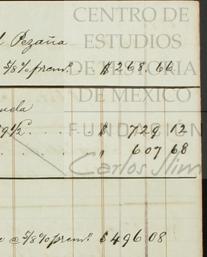 CENTRO DE
ESTUDIOS
DE HISTORIA
DE MÉXICO
FUNDACIÓN
Carlos Slim
Pezaña
5/8 % prem.º $ 268 66
9 1/2 . . . . $ 729 12
" 607 68
@ 5/8 % prem.º $ 496 08